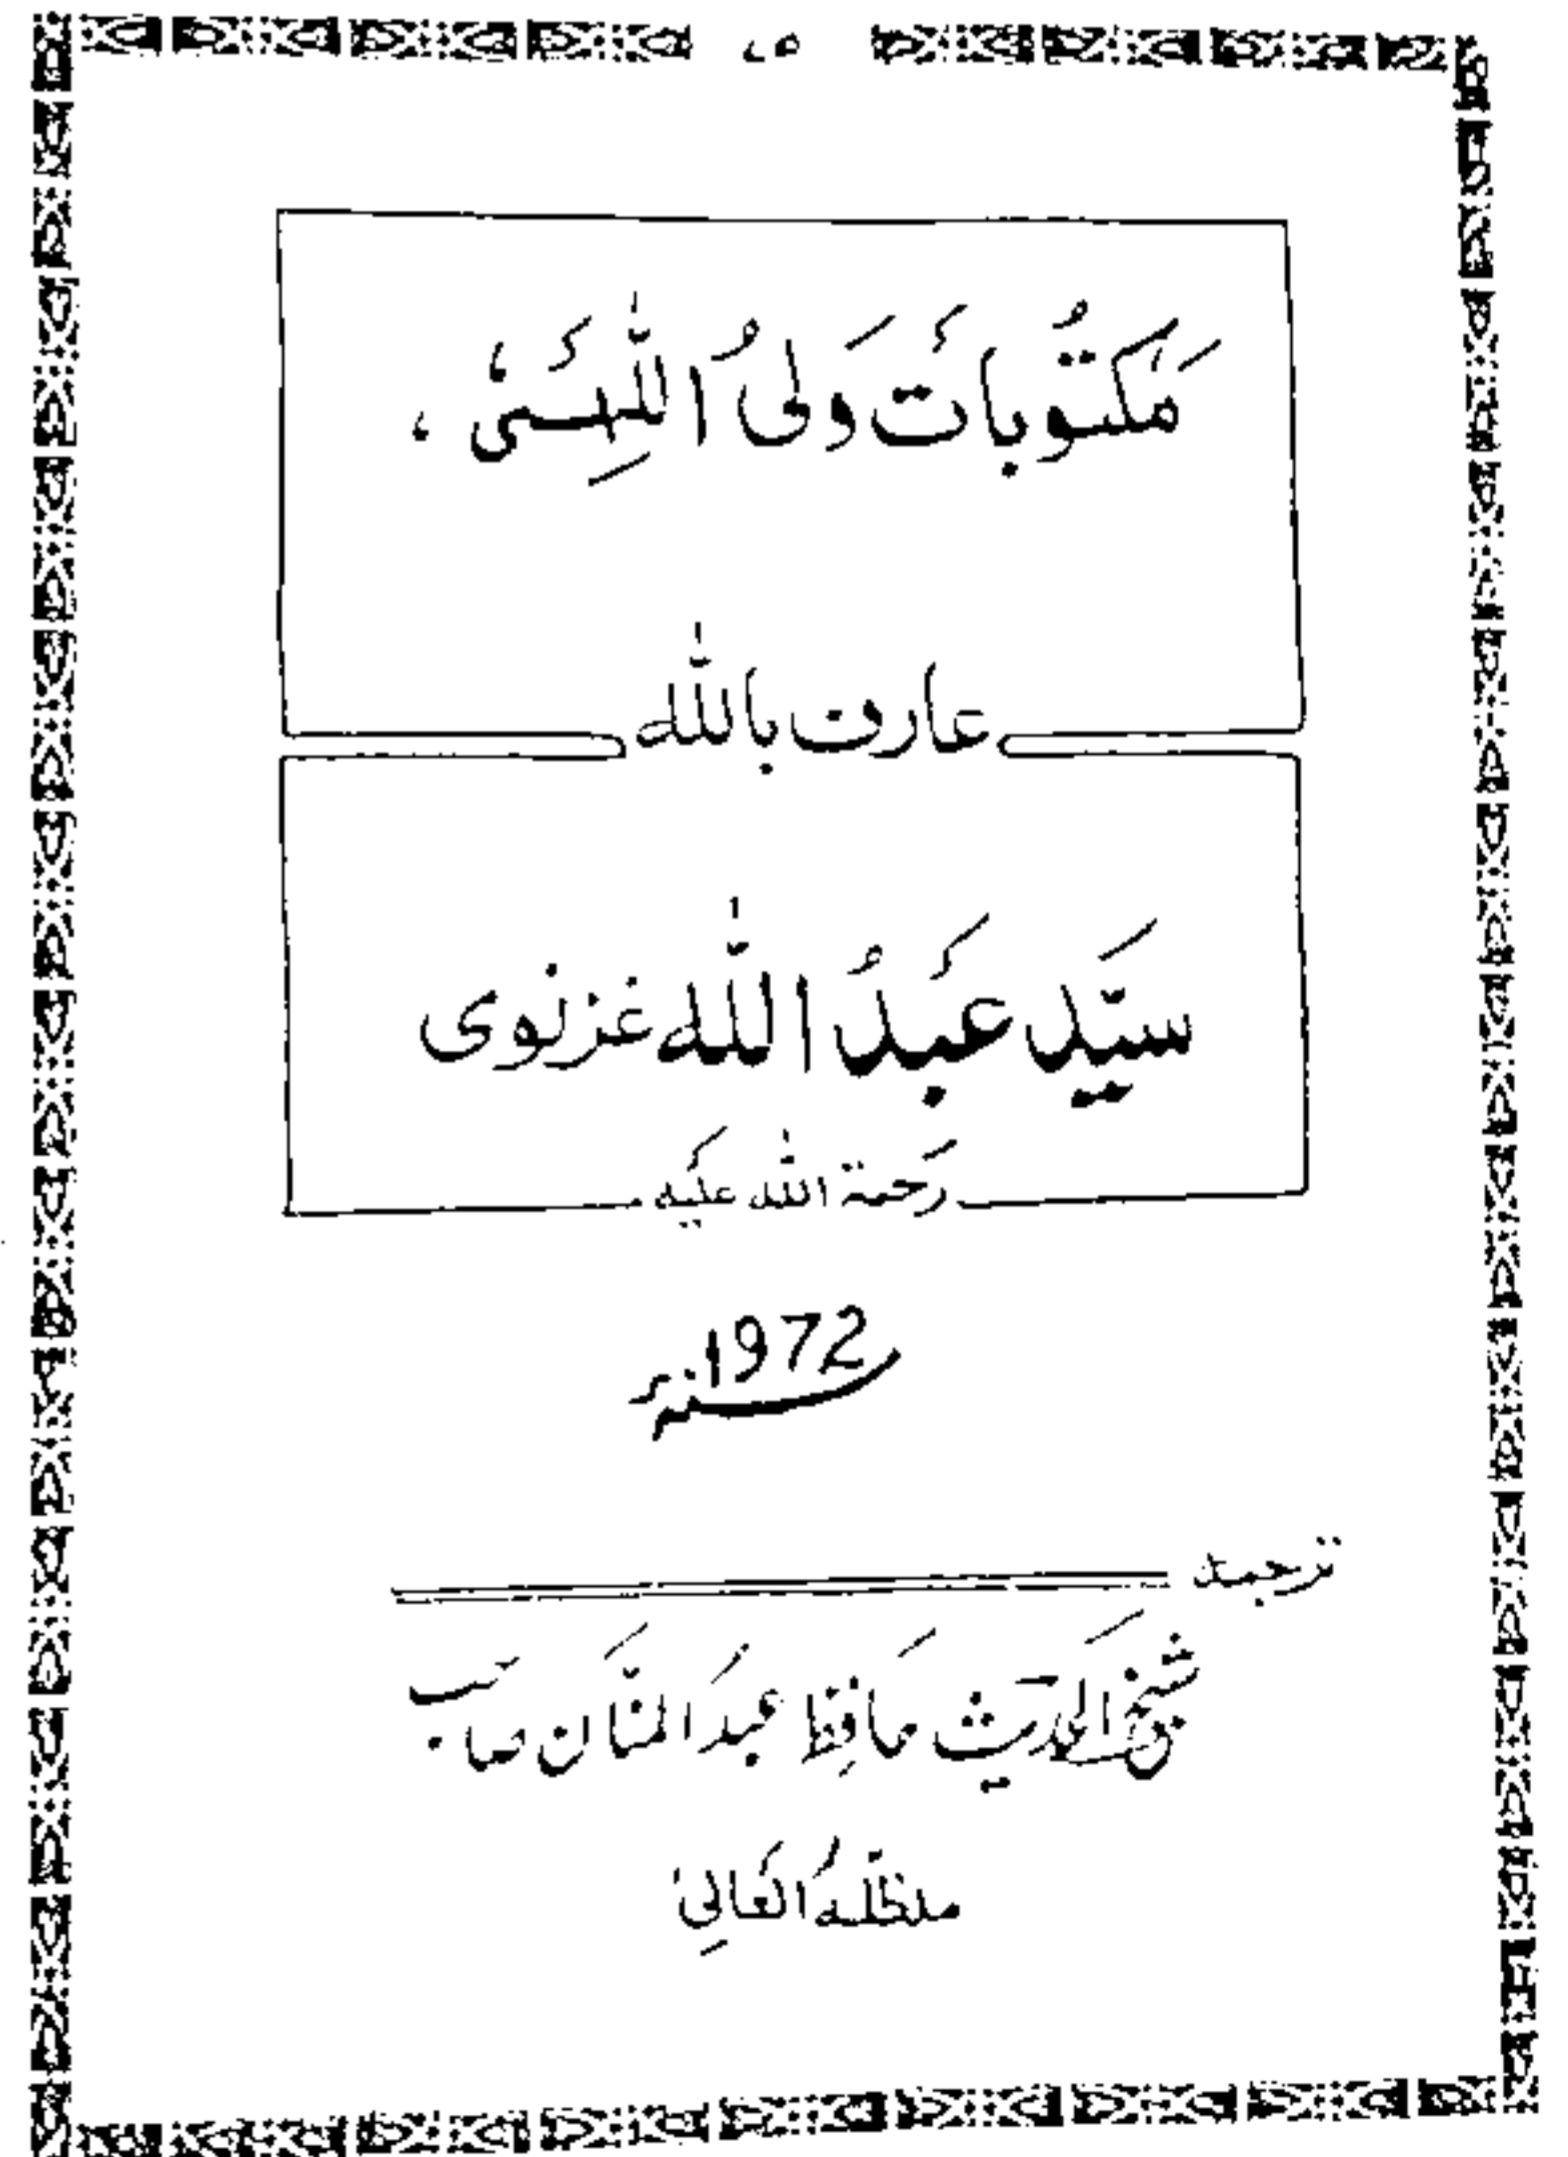 مَکتُوبات وَلیُ اللّٰہی،
عارف باللّٰہ
سیّد عَبدُ اللّٰہ غزنوی
رحمۃ اللّٰہ علیہ
1972
سنہ
ترجمہ
شیخ الحدیث حافظ عبد المنّان صاحب
مدظلہ العالی